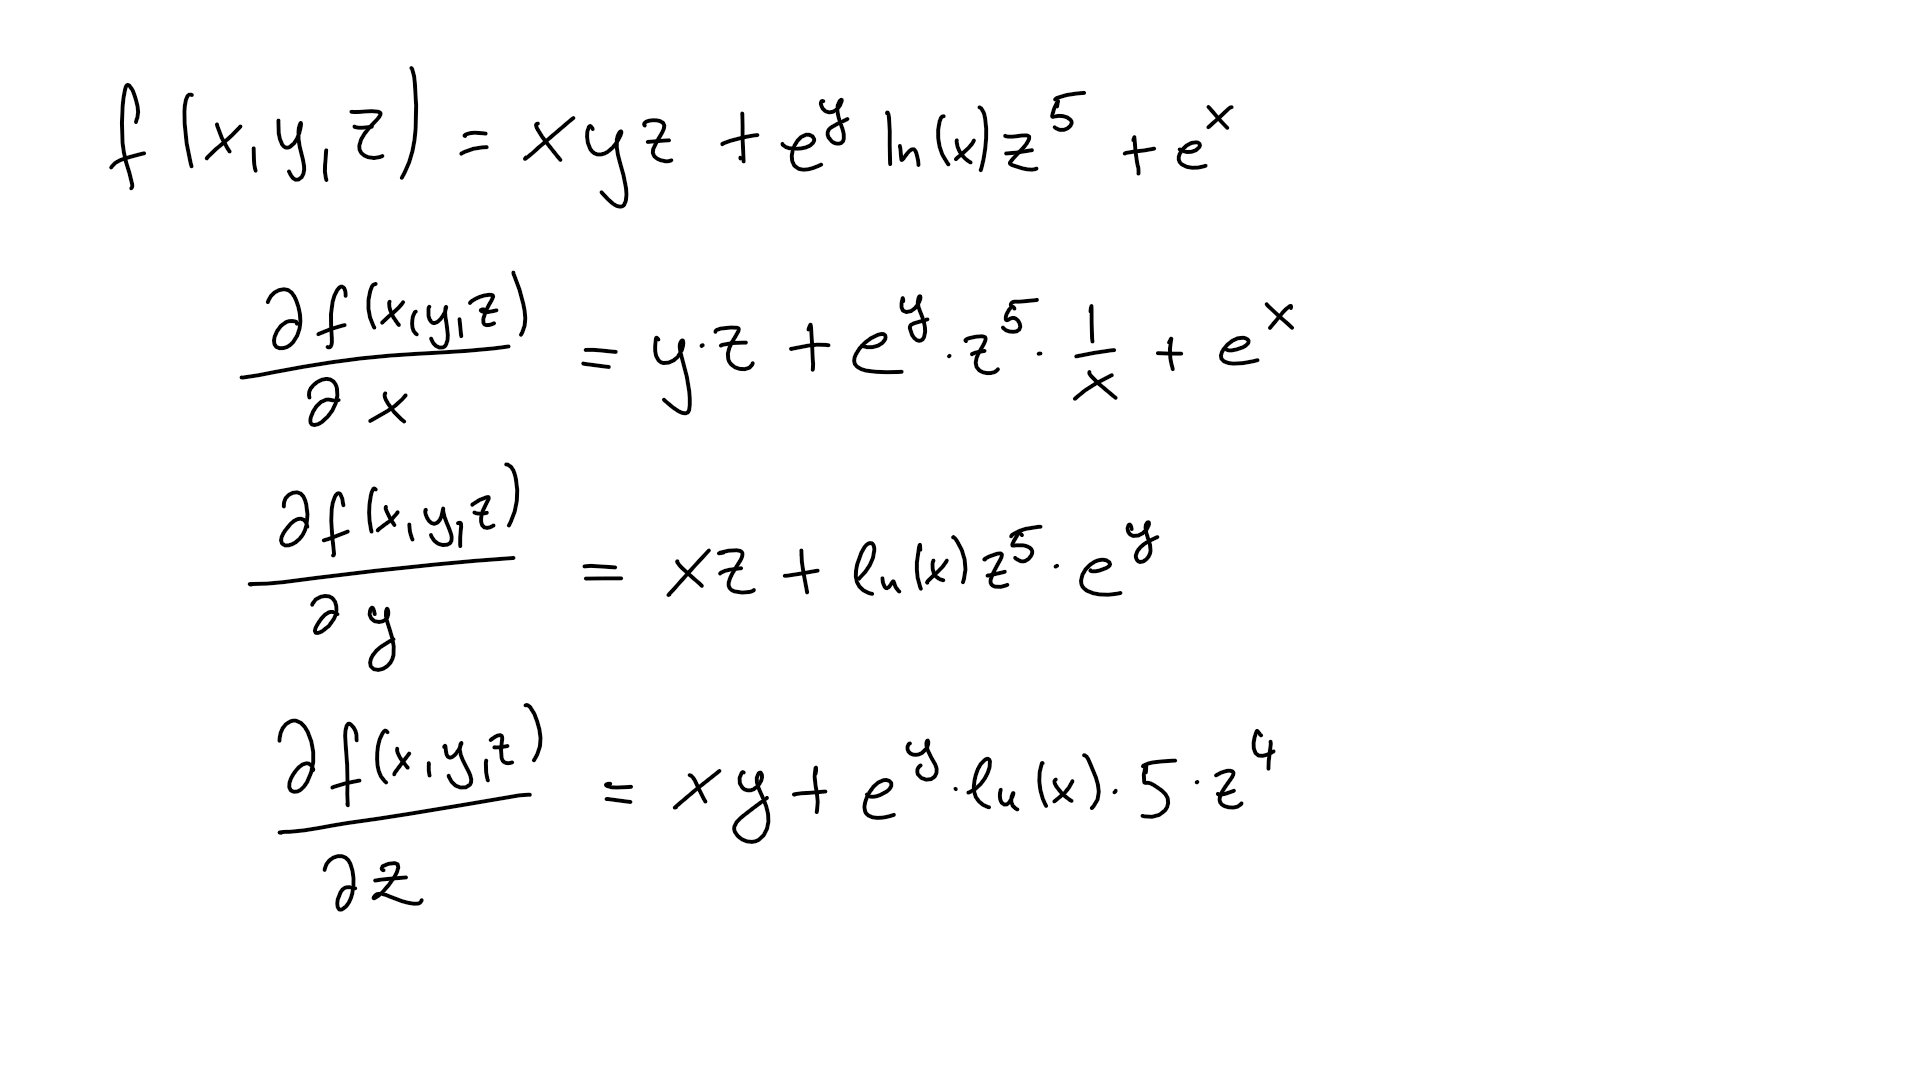 f(x,y,z) = xyz + e^y ln(x) z^5 + e^x
∂f(x,y,z)/∂x = y·z + e^y · z^5 · 1/x + e^x
∂f(x,y,z)/∂y = xz + ln(x) z^5 · e^y
∂f(x,y,z)/∂z = xy + e^y · ln(x) · 5 · z^4